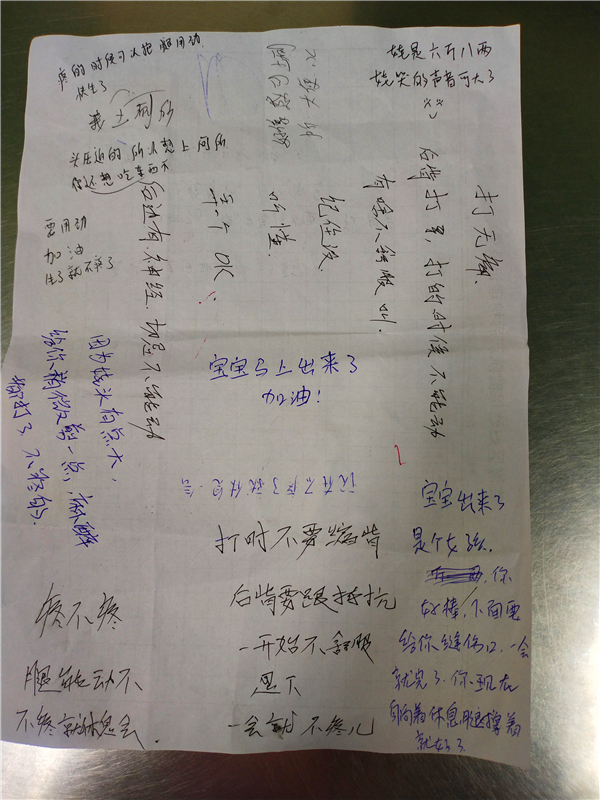 疼的时候可以把腿用动
快生了
我上厕所
头压迫的 所以想上厕所
你还想吃东西不
要用劲
加油
生了就不疼了
她是六斤八两
她笑的声音可大了
打无痛
后背打累,打的时候不能动
有啥不舒服叫.
记住没
听懂
平卡 OK
后边有神经.切忌不能动
宝宝马上出来了
加油!
因为她头有点大,
给你稍微剪一点,麻醉
都打了 不疼的.
打时不要缩背
后背要跟
一开始不舒服
忍下
一会就不疼儿
疼不疼
腿能动不
不疼就休息会.
宝宝出来了
是个女孩.
你
好棒,下面要
给你缝伤口,一会
就完了.你现在
休息,腿撑着
就好了